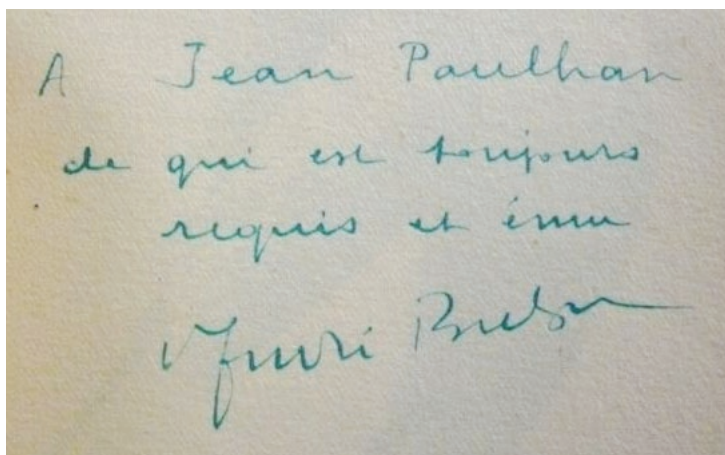 A Jean Paulhan
de qui est toujours
requis et ému
André Breton